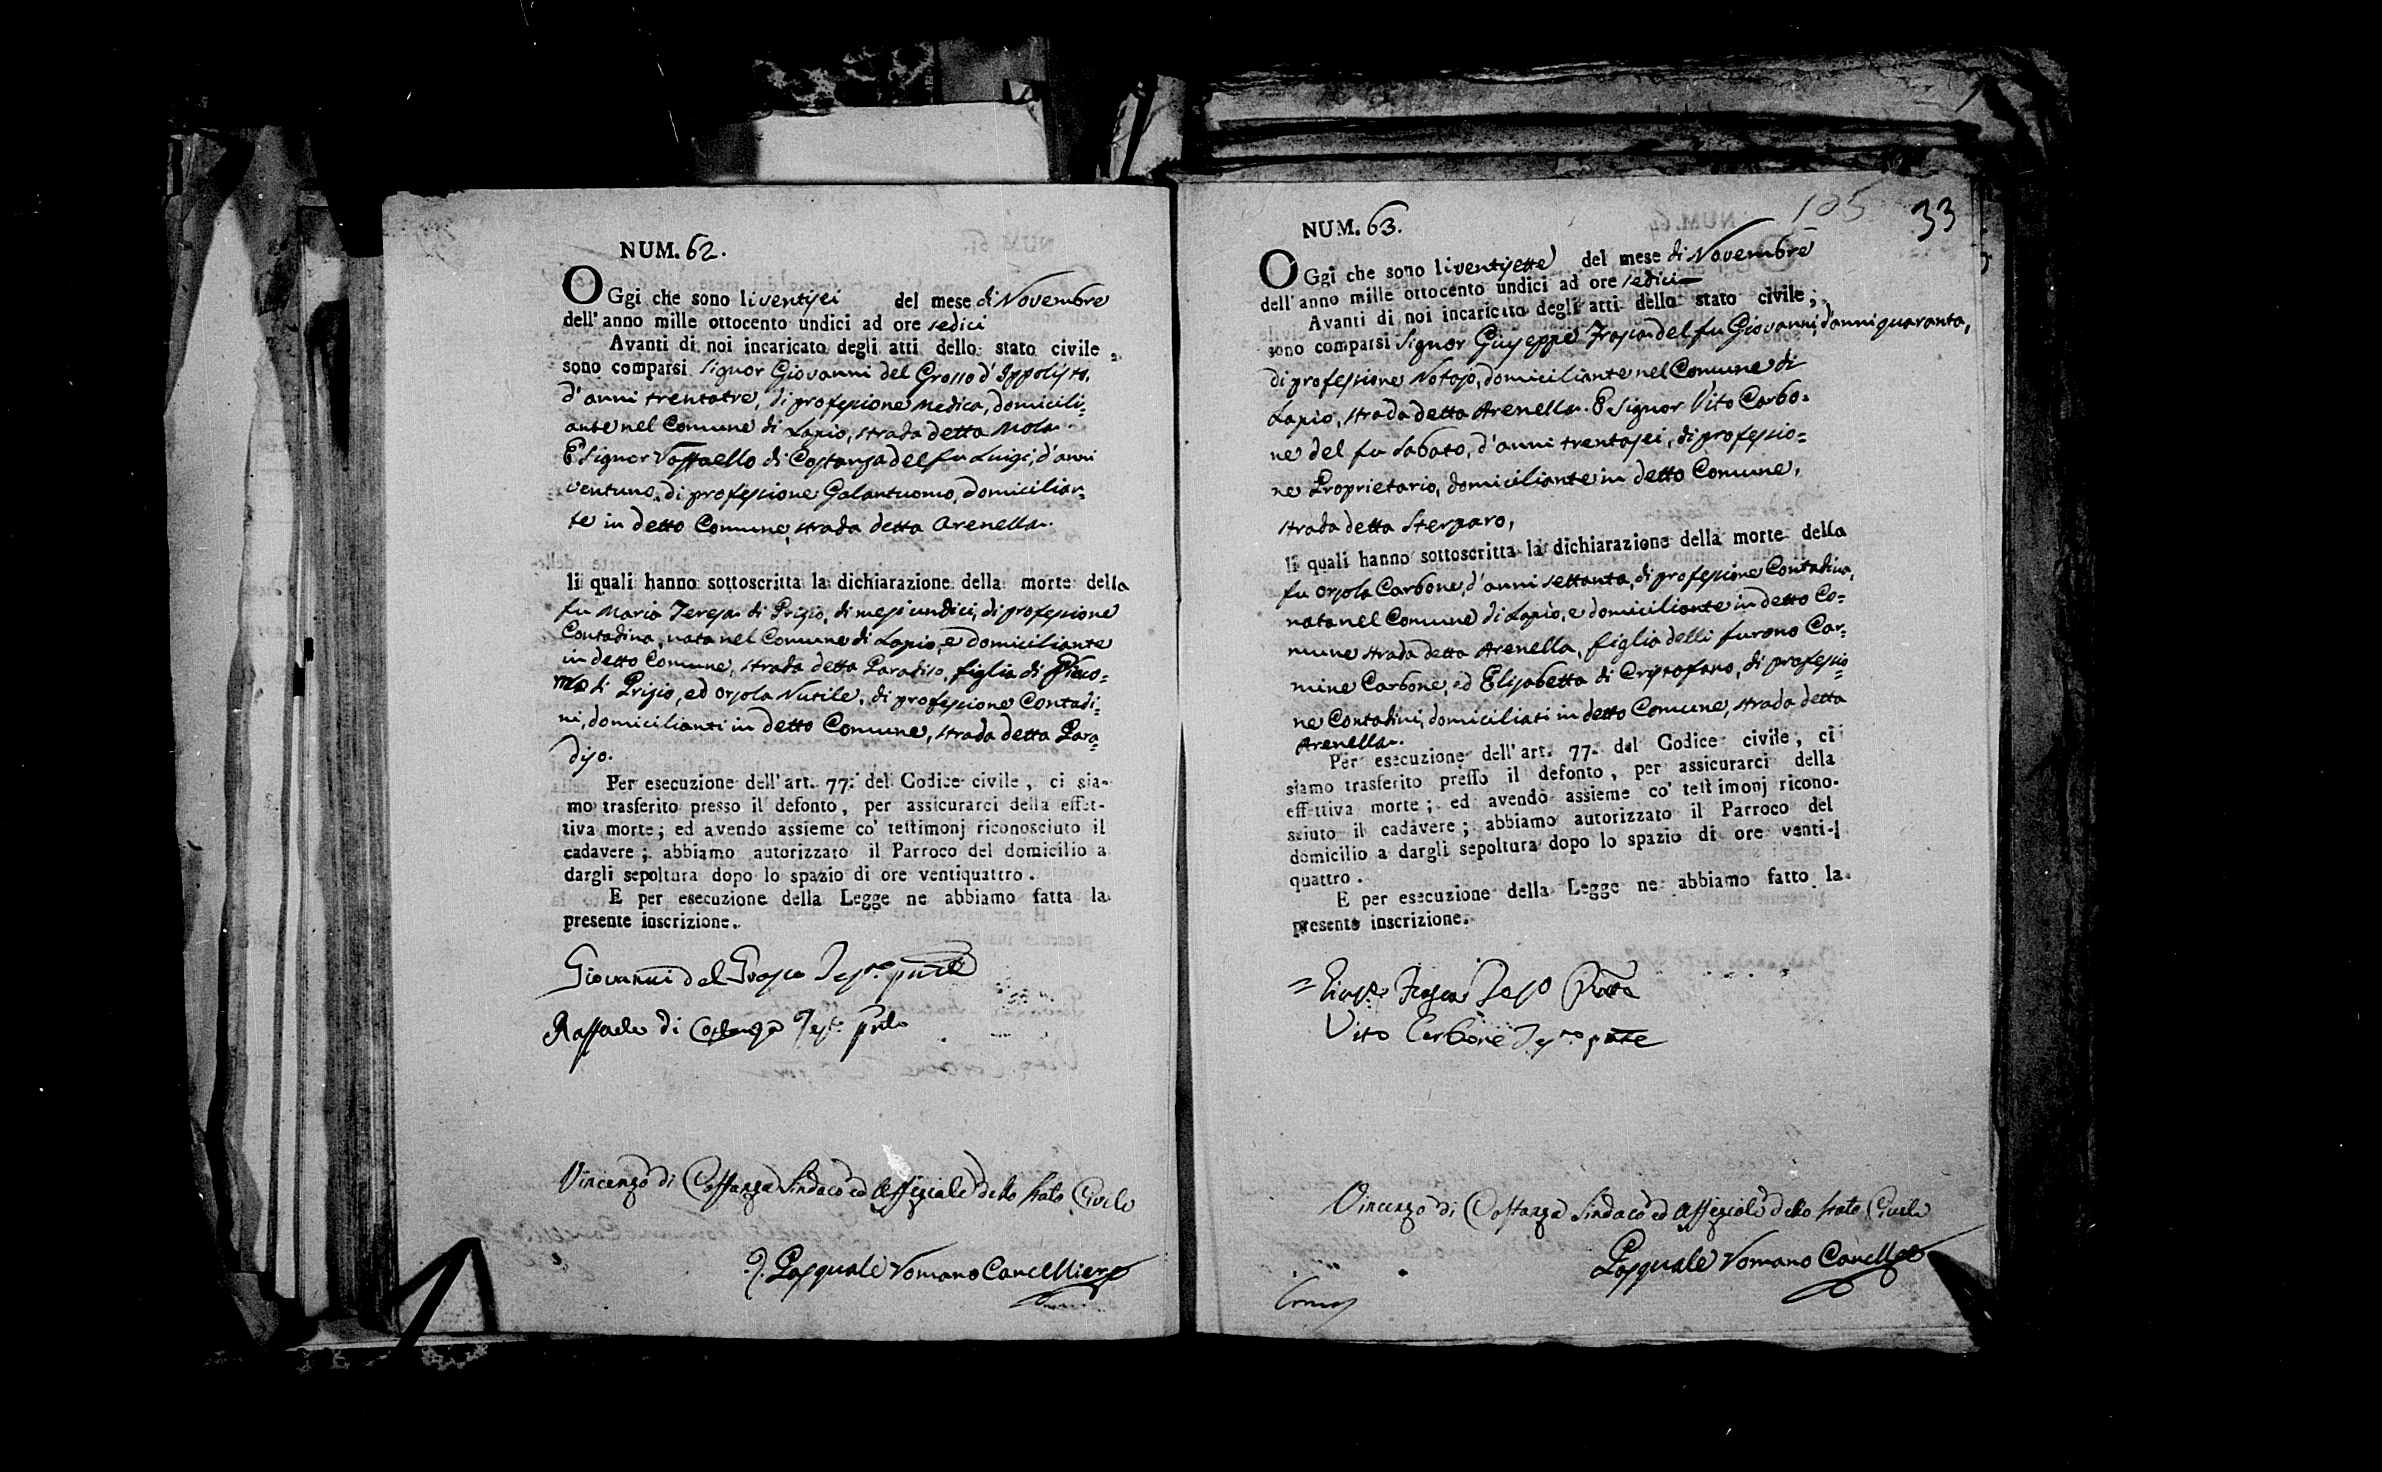 NUM. 62.
OGgi che sono li ventisei del mese di Novembre
dell'anno mille ottocento undici ad ore sedici
Avanti di noi incaricato degli atti dello stato civile,
sono comparsi Signor Giovanni del Grosso d'Ippolisto,
d'anni trentatre, di professione Medico, domicili=
ante nel Comune di Lapio, strada detta Mola.
E Signor Raffaello di Costanza del fu Luigi, d'anni
ventuno, di professione Galantuomo, domicilian=
te in detto Comune, strada detta Arenella.
li quali hanno sottoscritta la dichiarazione della morte della
fu Maria Teresa di Prizio, di mesi undici, di professione
Contadina, nata nel Comune di Lapio, e domiciliante
in detto Comune, strada detta Paradiso, figlia di
di Prizio, ed Orsola Nutile, di professione Contadi=
ni, domicilianti in detto Comune, strada detta Para=
diso.
Per esecuzione dell'art. 77. del Codice civile, ci sia-
mo trasferito presso il defonto, per assicurarci della effet-
tiva morte; ed avendo assieme co' testimonj riconosciuto il
cadavere; abbiamo autorizzato il Parroco del domicilio a
dargli sepoltura dopo lo spazio di ore ventiquattro.
E per esecuzione della Legge ne abbiamo fatta la
presente inscrizione.
Giovanni del Grosso
Raffaele di Costanza
Vincenzo di Costanza Sindaco ed Uffiziale dello Stato Civile
Pasquale Romano Cancelliere
105 33
NUM. 63.
OGgi che sono li ventisette del mese di Novembre
dell'anno mille ottocento undici ad ore sedici
Avanti di noi incaricato degli atti dello stato civile;
sono comparsi Signor Giuseppe Frasca del fu Giovanni, d'anni quaranta,
di professione Notajo, domiciliante nel Comune di
Lapio, strada detta Arenella. E Signor Vito Carbo=
ne del fu Sabato, d'anni trentasei, di professio=
ne Proprietario, domiciliante in detto Comune,
strada detta Sterparo,
li quali hanno sottoscritta la dichiarazione della morte della
fu Orsola Carbone, d'anni settanta, di professione Contadina,
nata nel Comune di Lapio, e domiciliante in detto Co=
mune strada detta Arenella, figlia delli furono Car=
mine Carbone, ed Elisabetta di Cristofano, di professio=
ne Contadini, domiciliati in detto Comune, strada detta
Arenella.
Per esecuzione dell'art. 77. del Codice civile, ci
siamo trasferito presso il defonto, per assicurarci della
effettiva morte; ed avendo assieme co' testimonj ricono-
sciuto il cadavere; abbiamo autorizzato il Parroco del
domicilio a dargli sepoltura dopo lo spazio di ore venti-
quattro.
E per esecuzione della Legge ne abbiamo fatto la
presente inscrizione.
Frasca
Vito Carbone
Vincenzo di Costanza Sindaco ed Uffiziale dello Stato Civile
Pasquale Romano